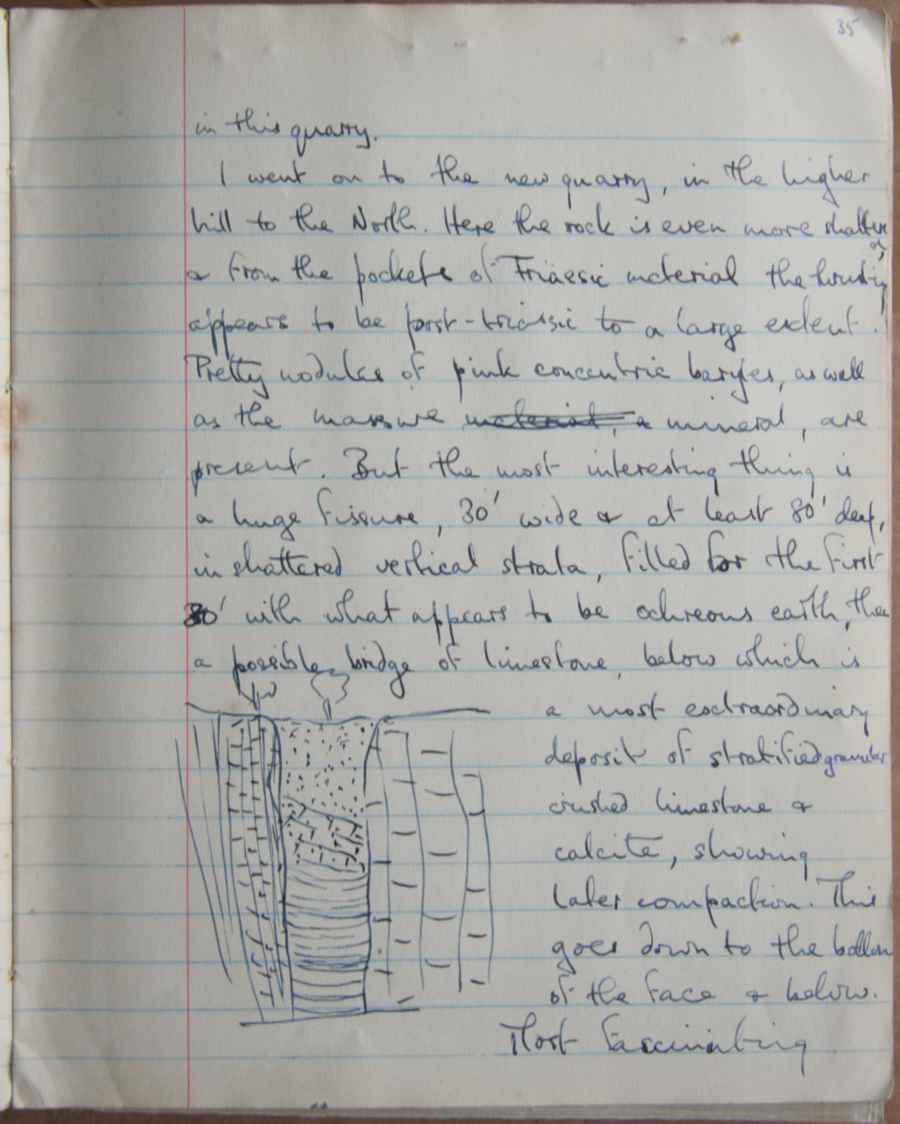 35
in this quarry.
I went on to the new quarry, in the higher
hill to the North. Here the rock is even more
& from the pockets of Triassic material the
appears to be post-triassic to a large extent.
Pretty nodules of pink concentric barytes, as well
as the massive material, a mineral, are
present. But the most interesting thing is
a huge fissure, 30' wide & at least 80' deep,
in shattered vertical strata, filled for the first
30' with what appears to be ochreous earth, then
a possible bridge of limestone, below which is
a most extraordinary
deposit of stratified granular
crushed limestone &
calcite, showing
later compaction. This
goes down to the bottom
of the face & below.
Most fascinating